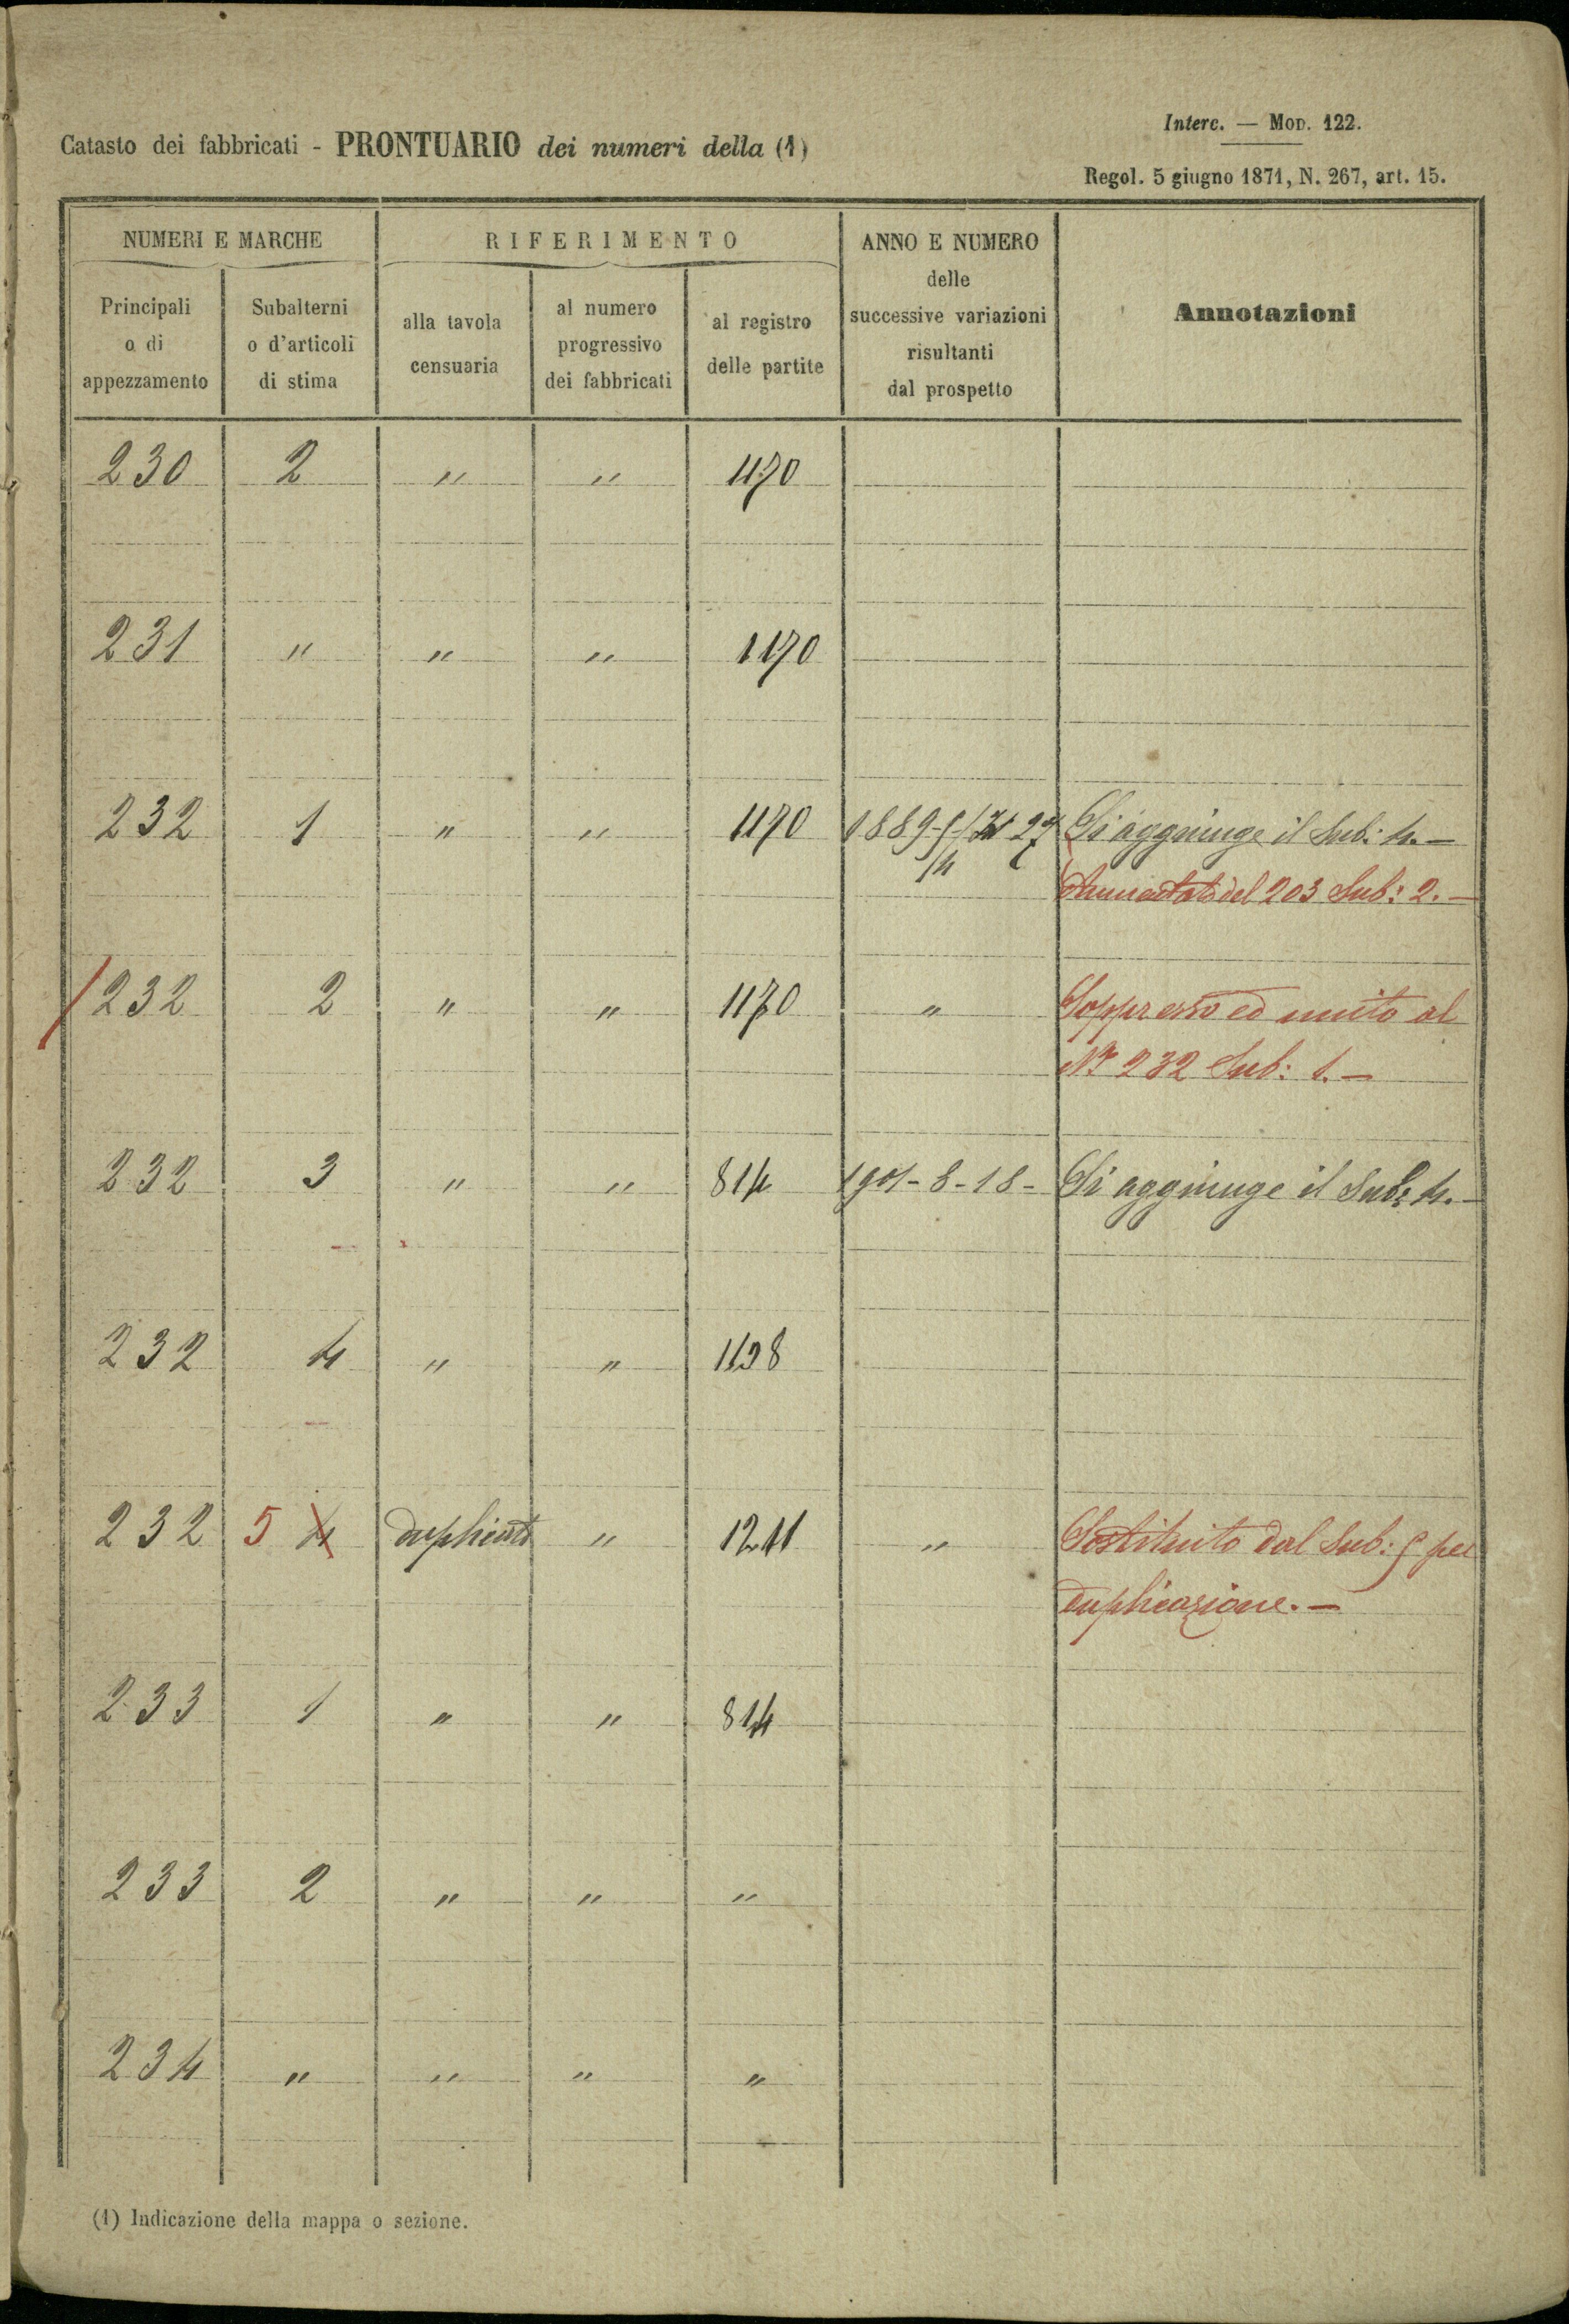 Catasto dei fabbricati - PRONTUARIO dei numeri della (1)
Interc. — Mod. 122.
Regol. 5 giugno 1871, N. 267, art. 15.
NUMERI E MARCHE
RIFERIMENTO
ANNO E NUMERO
delle
successive variazioni
risultanti
dal prospetto
Annotazioni
Principali
o di
appezzamento
Subalterni
o d'articoli
di stima
alla tavola
censuaria
al numero
progressivo
dei fabbricati
al registro
delle partite
230 2 " " 1170
231 " " " 1170
232 1 " " 1170 1889 27 Si aggiunge il Sub: 4. —
del 203 Sub: 2. —
232 2 " " 1170 " Soppresso ed unito al
N° 232 Sub: 1. —
232 3 " " 814 1901-8-18- Si aggiunge il Sub: 4. —
232 4 " " 1198
232 5 4 duplicato " 1241 " Sostituito dal Sub: 5 per
duplicazione. —
233 1 " " 814
233 2 " " "
234 " " " "
(1) Indicazione della mappa o sezione.